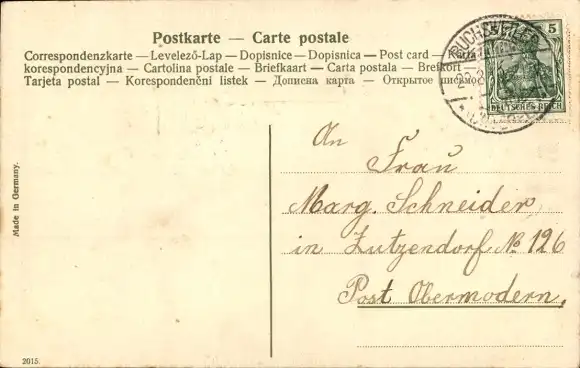 Postkarte — Carte postale
Correspondenzkarte — Levelező-Lap — Dopisnice — Dopisnica — Post card —
korespondencyjna — Cartolina postale — Briefkaart — Carta postala — Brefkort —
Tarjeta postal — Korespondenční listek — Дописна карта — Открытое письмо
BUCHSWEILER
5
DEUTSCHES REICH
An
Frau
Marg. Schneider
in Zutzendorf № 126
Post Obermodern.
Made in Germany.
2015.